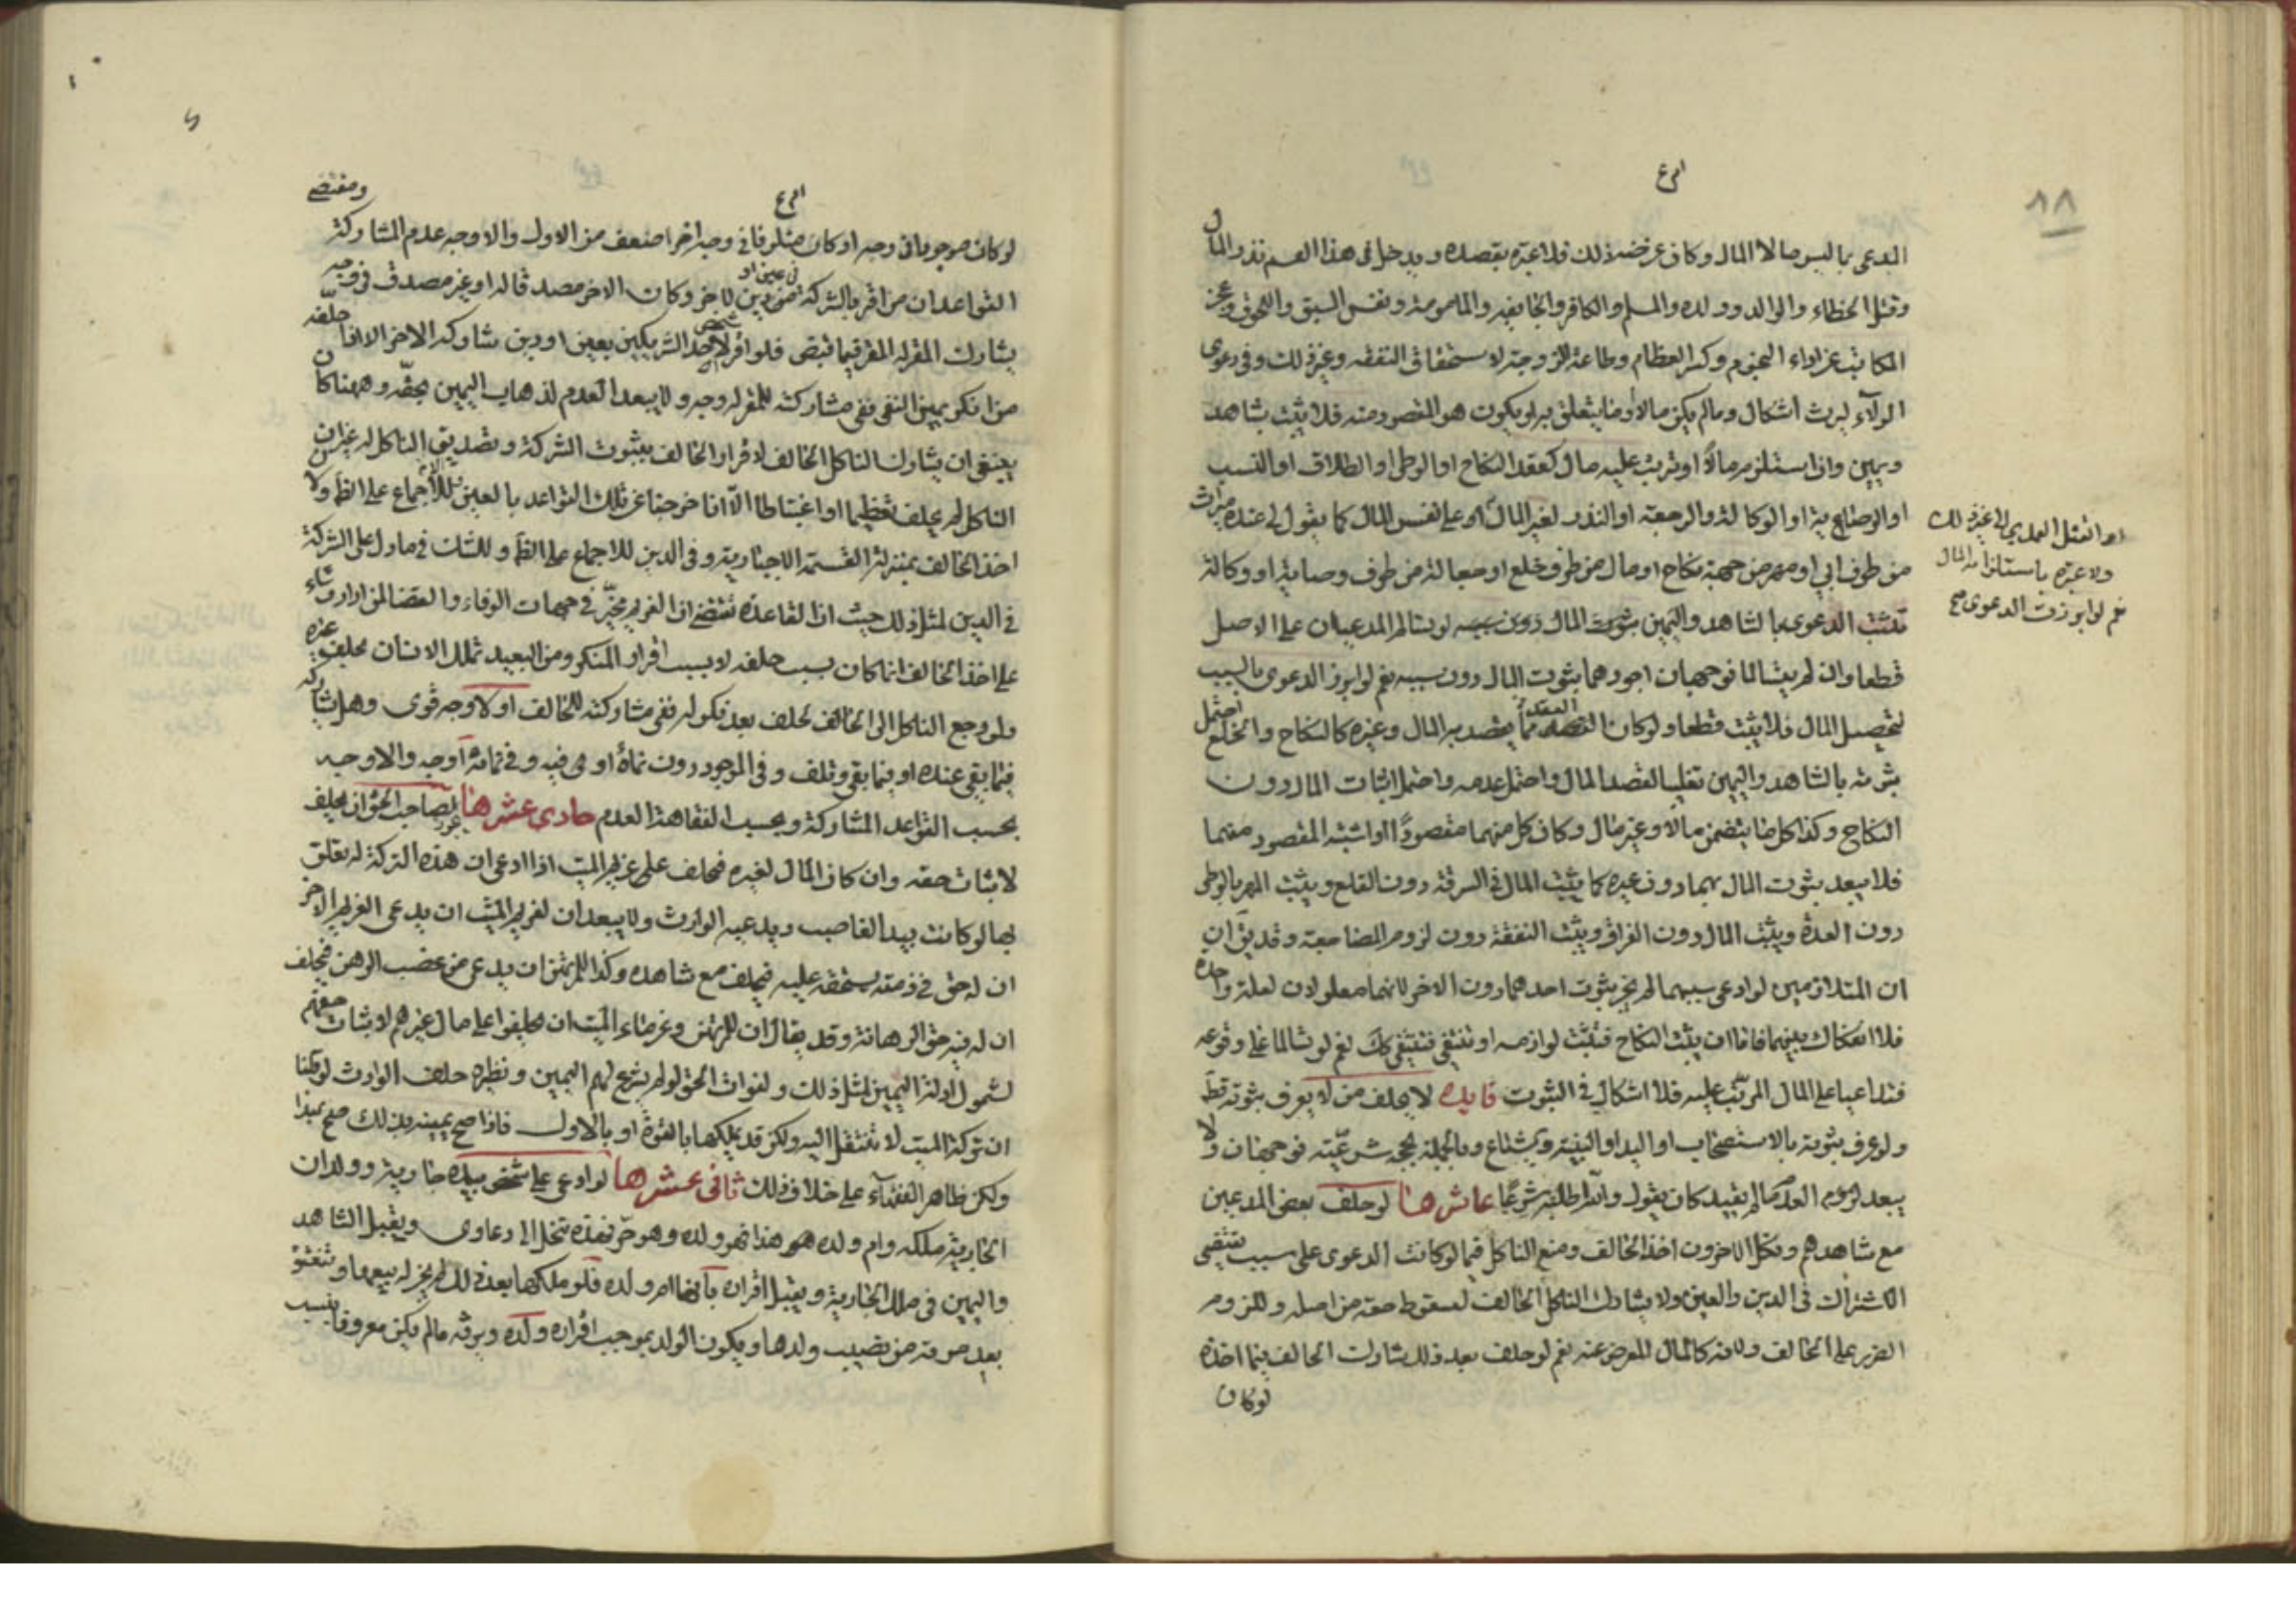 ٨٨
المدعى بما ليس مالا المال وكان غرضه ذلك فلا عبرة بقصده ويدخل في هذا القسم نذر المال
وقتل الخطاء والوالد وولده والمسلم والكافر والجايفه والمامومة ونفس السبق والعوق وعجز
المكاتب عن اداء النجوم وكسر العظام وطاعة الزوجة لاستحقاق النفقه وغير ذلك وفي دعوى
الولاء لارث اشكال وما لم يكن مالا وما يتعلق به او يكون هو المقصود منه فلا يثبت بشاهد
ويمين وان استلزم مالا او ترتب عليه مال كعقد النكاح او الوطى او الطلاق او النسب
او الوصاية او الوكالة والرجعة او النذر لغير المال او على نفس المال كما يقول لي عنده ميراث
من طرف ابي او مهر من جهة نكاح او مال من طرف خلع او جعالة من طرف وصاية او وكالة
تثبت الدعوى بالشاهد واليمين بثبوت المال دون سببه لو تسالم المدعيان على الاصل
قطعا وان لم يتسالما فوجهان اجودهما بثبوت المال دون سببه نعم لو ابرز الدعوى بالسبب
لتحصيل المال فلا يثبت قطعا ولو كان العقد مما يقصد به المال وغيره كالنكاح والخلع احتمل
ثبوته بالشاهد واليمين تغليبا لقصد المال واحتمل عدمه واحتمل اثبات المال دون
النكاح وكذا كل ما يتضمن مالا وغير مال وكان كل منهما مقصودا او اشتبه المقصود منهما
فلا يبعد بثبوت المال بهما دون غيره كما يثبت المال في السرقة دون القلع ويثبت المهر بالوطى
دون العدة ويثبت المال دون الفراق ويثبت النفقة دون لزوم المضاجعة وقد يق ان
ان المتلازمين لو ادعى سببهما لم يجز بثبوت احدهما دون الاخر لانهما معلولان لعلة واحدة
فلا انفكاك بينهما فاما ان يثبت النكاح فتثبت لوازمه او تنتفي فتنتفي كك نعم لو تسالما على وقوعه
فتداعيا على المال المرتب عليه فلا اشكال في الثبوت فايده لا يحلف من لا يعرف بثوته قط
ولو عرف بثوته بالاستصحاب او اليد او البينة وبالجملة بحجة شرعيه فوجهان ولا
يبعد لزوم العدم ما لم يقيد كان يقول والله اطلبه شرعا عاشرها لو حلف بعض المدعين
مع شاهدهم ونكل الاخرون اخذ الحالف ومنع الناكل فيما لو كانت الدعوى على سبب يقتضي
الاشتراك في الدين والعين ولا يشارك الناكل الحالف لسقوط حقه من اصله وللزوم
الضرر على الحالف ولانه كالمال المعرض عنه نعم لو حلف بعد ذلك شارك الحالف فيما اخذه
لو كان
او القتل العمدي الى غير ذلك
ولا عبرة باستلزامه المال
نعم لو ابرزت الدعوى صح
لو كان موجودا في وجه او كان متلوفا في وجه اخر اضعف من الاول والاوجه عدم المشاركة
ومقتضى
القواعد ان من اقر بالشركة في عين او دين لاخر وكان الاخر مصدقا له او غير مصدق في وجه
يشارك المقر له المقر فيما قبض فلو اقر شخص لاحد الشريكين بعين او دين شاركه الاخر الا اذا حلفه
من انكر يمين النفي ففي مشاركته للمقر له وجه ولا يبعد العدم لذهاب اليمين بحقه وههنا كان
ينبغي ان يشارك الناكل الحالف لاقرار الحالف بثبوت الشركة وتصديق الناكل له غير ان
الناكل لم يحلف تعظيما او اغتباطا الا انا خرجنا عن تلك القواعد بالعين للاجماع على الظ ولان
اخذ الحالف بمنزلة القسمة الاجبارية وفي الدين للاجماع على الظ وللشك في ما دل على الشركة
في الدين لمثل ذلك حيث ان القاعدة تقتضي ان الغريم مخير في جهات الوفاء والقضا لمن اراد شاء
على اخذ الحالف انما كان بسبب حلفه لا بسبب اقرار المنكر ومن البعيد تملك الانسان بحلف غيره
ولو رجع الناكل الى الحالف فحلف بعد نكوله ففي مشاركته للحالف او لا وجه قوى وهل يشاركه
فيما بقي عنده او فيما بقي وتلف وفي الموجود دون نمائه او هى فيه وفي نمائه اوجه والاوجه
بحسب القواعد المشاركة وبحسب الفقاهة العدم حادى عشرها يجوز لصاحب الحق ان يحلف
لاثبات حقه وان كان المال لغيره فيحلف على غريم الميت اذا ادعى ان هذه التركة له تعلق
بها لو كانت بيد الغاصب ويدعيه الوارث ولا يبعد ان لغريم الميت ان يدعى الغريم الاخر
ان له حق في ذمته يستحقه عليه فيحلف مع شاهده وكذا للمرتهن ان يدعى من غصب الرهن فيحلف
ان له فيه حق الرهانة وقد يقال ان للمرتهن وغرماء الميت ان يحلفوا على مال غيرهم لاثبات حقهم
لشمول ادلة اليمين لمثل ذلك ولفوات الحق لو لم يشرع لهم اليمين ونظيره حلف الوارث لو قلنا
ان تركة الميت لا تنتقل اليه ولكن قد يملكها بالقوة او بالاول فاذا صح يمينه بذلك صح بهذا
ولكن ظاهر الفقهاء على خلاف ذلك ثانى عشرها لو ادعى على شخص بيده جارية وولد ان
الجارية ملكه وام ولده هو هذا فهو ولده وهو حر فهذه تنحل الى دعاوى ويقبل الشاهد
واليمين في ملك الجارية ويقبل اقراره بانها ام ولده فلو ملكها بعد ذلك لم يجز له بيعها وتنعتق
بعد موته من نصيب ولدها ويكون الولد بموجب اقراره ولده ويرثه ما لم يكن معروفا بنسب